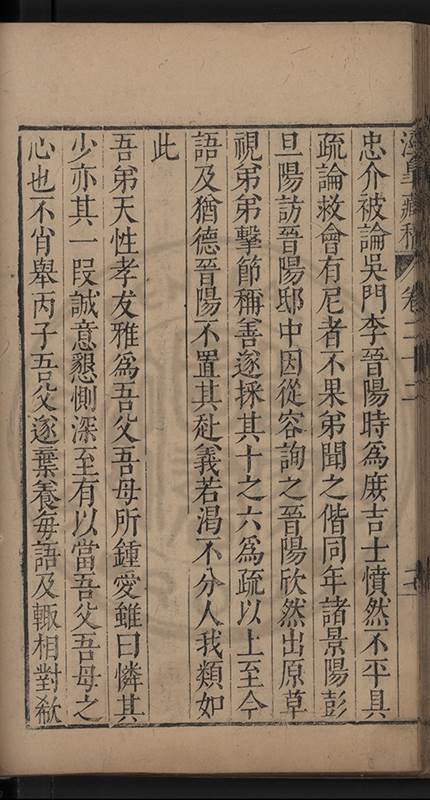 涇皋藏稿 卷二十二
忠介被論吳門李晉陽時為庶吉士憤然不平具
疏論救會有尼者不果弟聞之偕同年諸景陽彭
旦陽訪晉陽邸中因從容詢之晉陽欣然出原草
視弟弟擊節稱善遂採其十之六為疏以上至今
語及猶德晉陽不置其赴義若渴不分人我類如
此
吾弟天性孝友雅為吾父吾母所鍾愛雖曰憐其
少亦其一段誠意懇惻深至有以當吾父吾母之
心也不肖舉丙子吾父遂棄養每語及輙相對欷